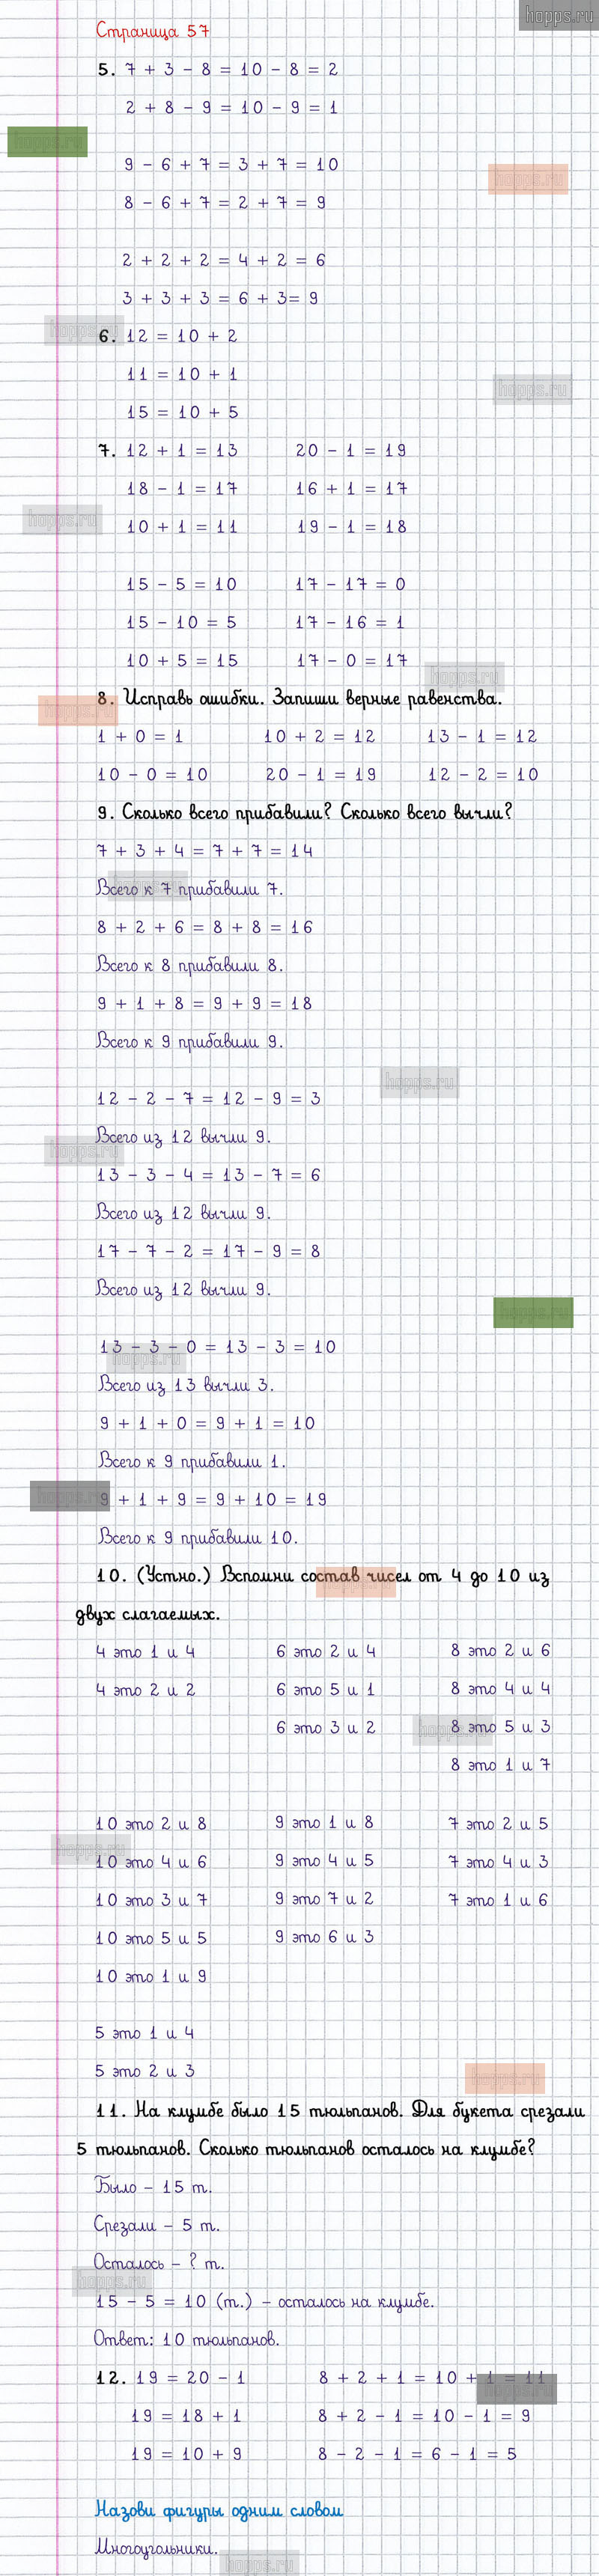 hopps.ru
Страница 57
5. 7 + 3 - 8 = 10 - 8 = 2
2 + 8 - 9 = 10 - 9 = 1
hopps.ru
9 - 6 + 7 = 3 + 7 = 10
hopps.ru
8 - 6 + 7 = 2 + 7 = 9
2 + 2 + 2 = 4 + 2 = 6
3 + 3 + 3 = 6 + 3 = 9
hopps.ru
6. 12 = 10 + 2
11 = 10 + 1
hopps.ru
15 = 10 + 5
7. 12 + 1 = 13 20 - 1 = 19
18 - 1 = 17 16 + 1 = 17
hopps.ru
10 + 1 = 11 19 - 1 = 18
15 - 5 = 10 17 - 17 = 0
15 - 10 = 5 17 - 16 = 1
10 + 5 = 15 17 - 0 = 17
hopps.ru
8. Исправь ошибки. Запиши верные равенства.
hopps.ru
1 + 0 = 1 10 + 2 = 12 13 - 1 = 12
10 - 0 = 10 20 - 1 = 19 12 - 2 = 10
9. Сколько всего прибавили? Сколько всего вычли?
7 + 3 + 4 = 7 + 7 = 14
Всего к 7 прибавили 7.
hopps.ru
8 + 2 + 6 = 8 + 8 = 16
Всего к 8 прибавили 8.
9 + 1 + 8 = 9 + 9 = 18
Всего к 9 прибавили 9.
hopps.ru
12 - 2 - 7 = 12 - 9 = 3
Всего из 12 вычли 9.
hopps.ru
13 - 3 - 4 = 13 - 7 = 6
Всего из 12 вычли 9.
17 - 7 - 2 = 17 - 9 = 8
Всего из 12 вычли 9.
hopps.ru
13 - 3 - 0 = 13 - 3 = 10
hopps.ru
Всего из 13 вычли 3.
9 + 1 + 0 = 9 + 1 = 10
Всего к 9 прибавили 1.
hopps.ru
9 + 1 + 9 = 9 + 10 = 19
Всего к 9 прибавили 10.
10. (Устно.) Вспомни состав чисел от 4 до 10 из
hopps.ru
двух слагаемых.
4 это 1 и 4 6 это 2 и 4 8 это 2 и 6
4 это 2 и 2 6 это 5 и 1 8 это 4 и 4
6 это 3 и 2 8 это 5 и 3
hopps.ru
8 это 1 и 7
10 это 2 и 8 9 это 1 и 8 7 это 2 и 5
hopps.ru
10 это 4 и 6 9 это 4 и 5 7 это 4 и 3
10 это 3 и 7 9 это 7 и 2 7 это 1 и 6
10 это 5 и 5 9 это 6 и 3
10 это 1 и 9
5 это 1 и 4
5 это 2 и 3
hopps.ru
11. На клумбе было 15 тюльпанов. Для букета срезали
5 тюльпанов. Сколько тюльпанов осталось на клумбе?
Было - 15 т.
Срезали - 5 т.
Осталось - ? т.
hopps.ru
15 - 5 = 10 (т.) - осталось на клумбе.
Ответ: 10 тюльпанов.
12. 19 = 20 - 1 8 + 2 + 1 = 10 + 1 = 11
hopps.ru
19 = 18 + 1 8 + 2 - 1 = 10 - 1 = 9
19 = 10 + 9 8 - 2 - 1 = 6 - 1 = 5
Назови фигуры одним словом
Многоугольники.
hopps.ru